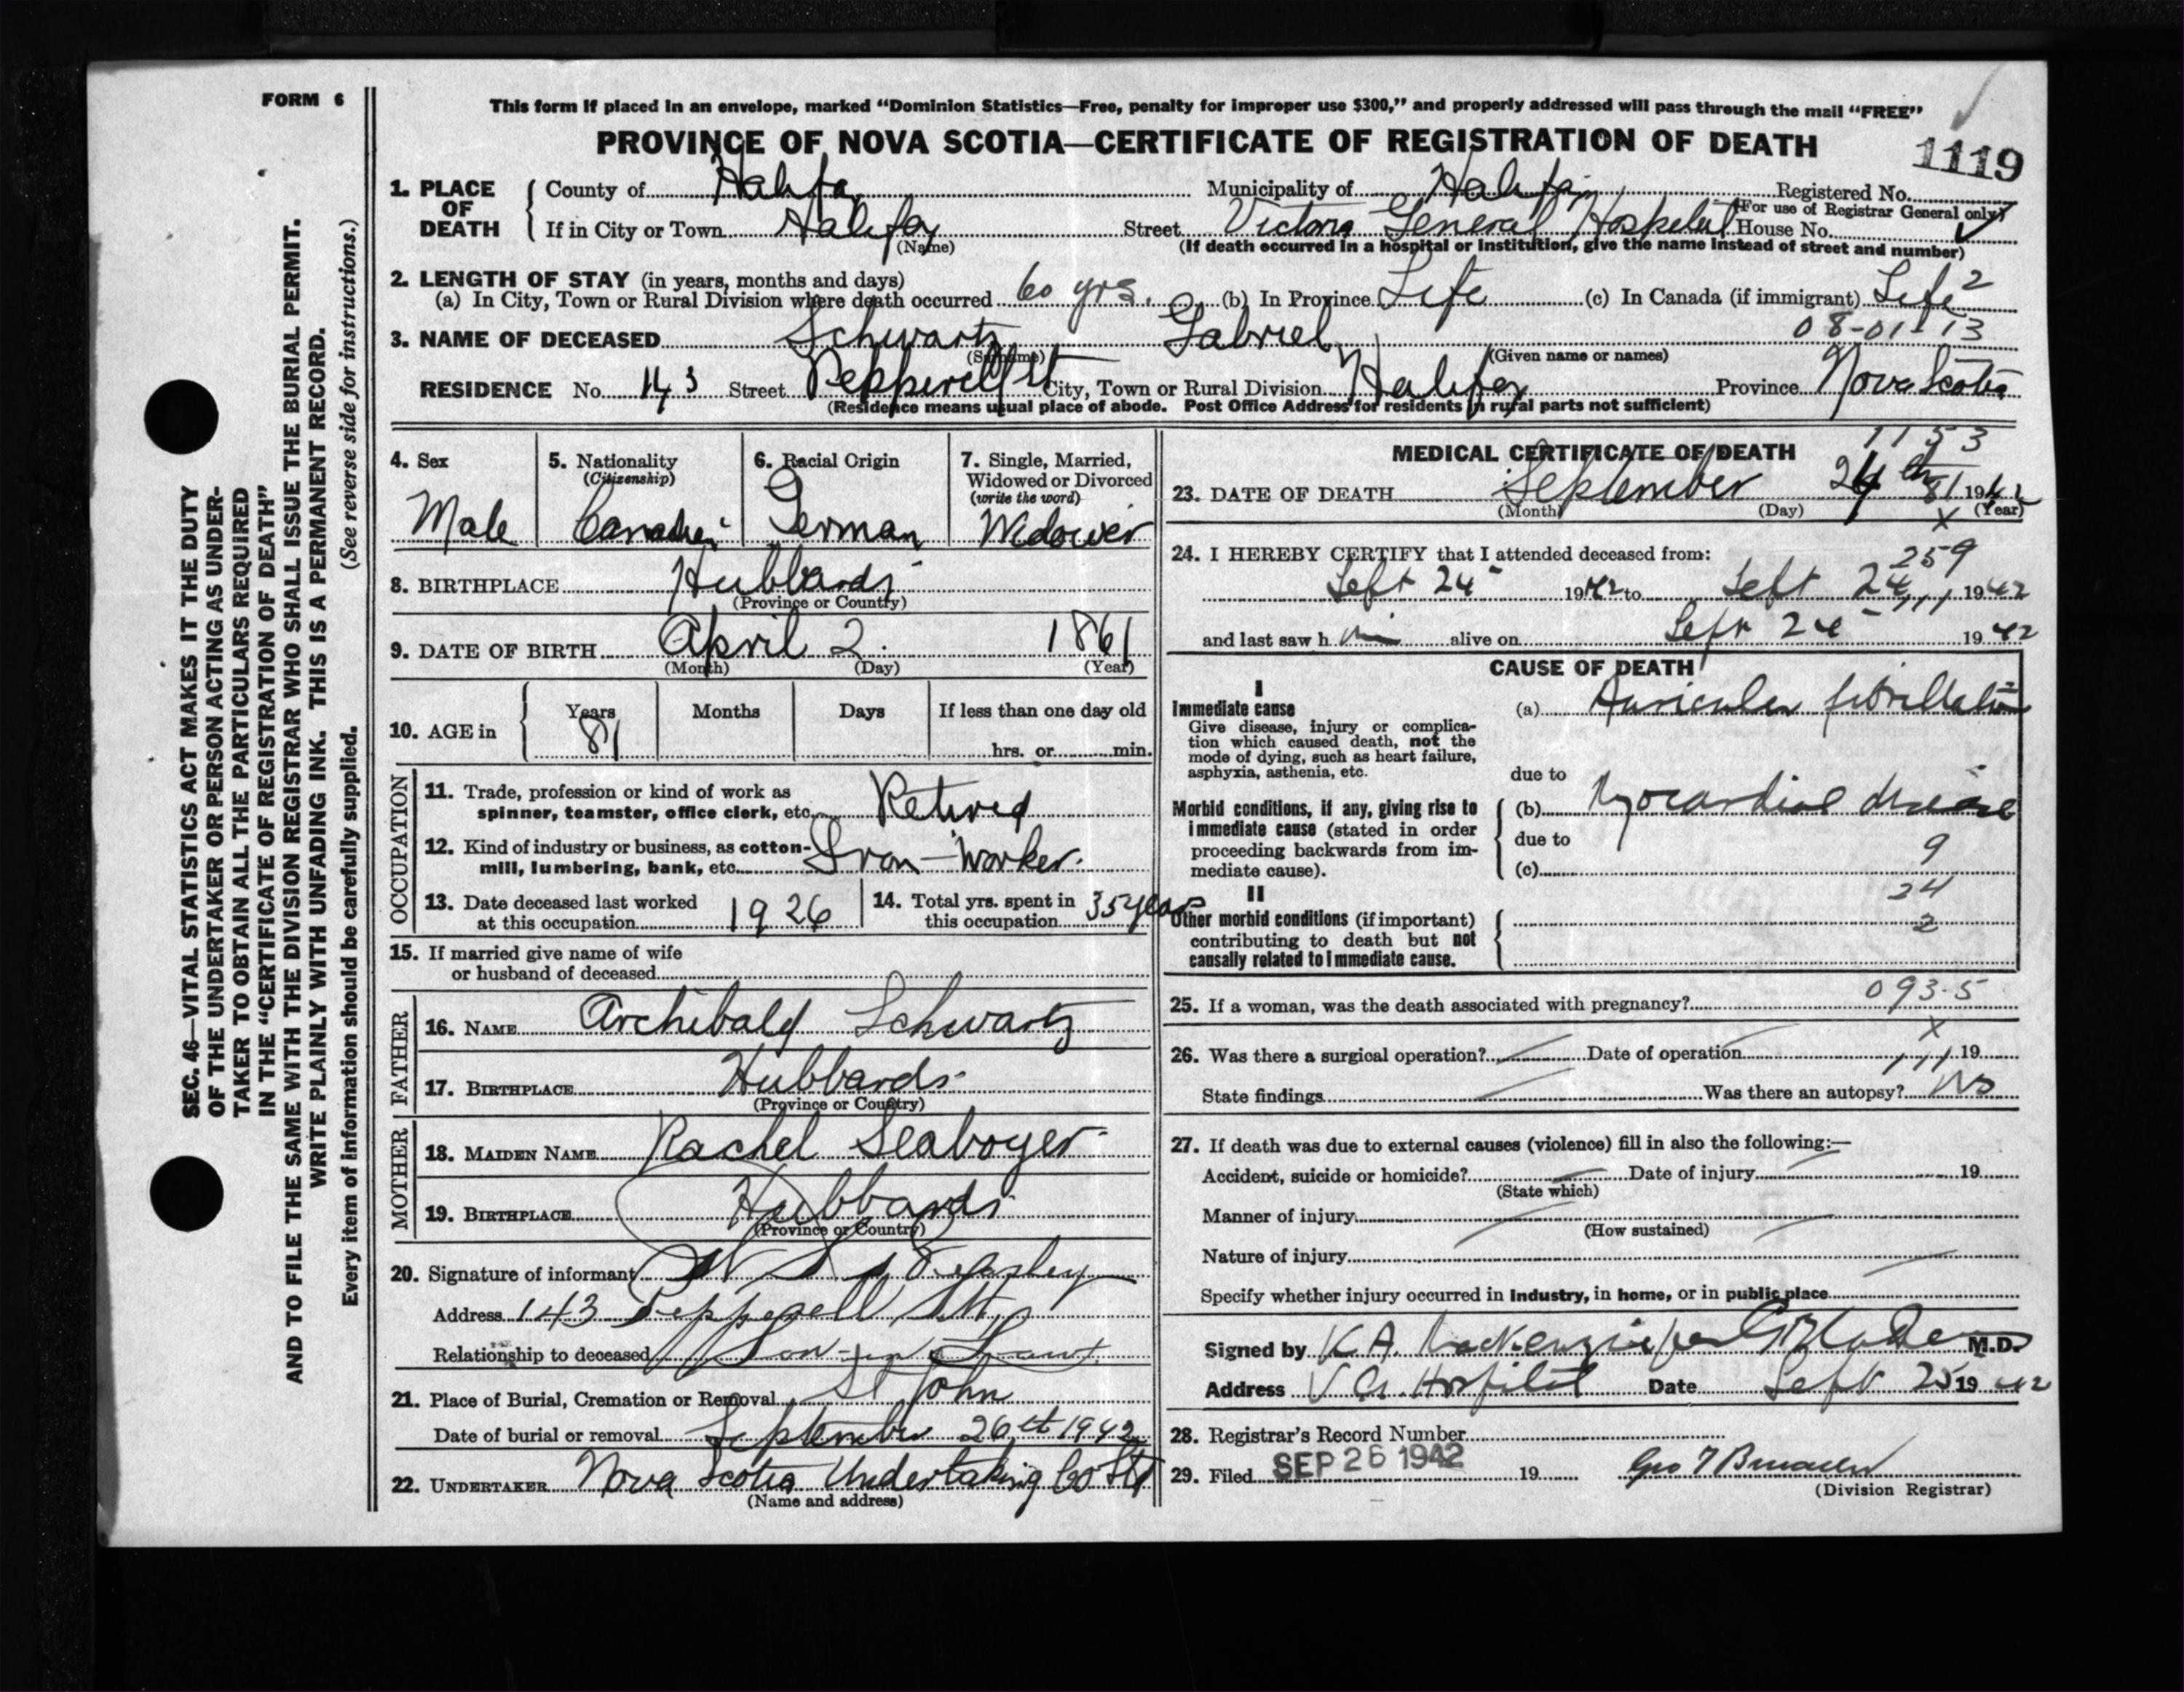 FORM 6
This form if placed in an envelope, marked "Dominion Statistics—Free, penalty for improper use $300," and properly addressed will pass through the mail "FREE"
PROVINCE OF NOVA SCOTIA—CERTIFICATE OF REGISTRATION OF DEATH
1119
1. PLACE OF DEATH
County of Halifax Municipality of Halifax Registered No.
(For use of Registrar General only)
If in City or Town Halifax Street Victoria General Hospital House No.
(Name) (If death occurred in a hospital or institution, give the name instead of street and number)
2. LENGTH OF STAY (in years, months and days)
(a) In City, Town or Rural Division where death occurred 60 yrs. (b) In Province Life (c) In Canada (if immigrant) Life 2
08-01-13
3. NAME OF DECEASED Schwartz Gabriel
(Surname) (Given name or names)
RESIDENCE No. 143 Street Pepperell St City, Town or Rural Division Halifax Province Nova Scotia
(Residence means usual place of abode. Post Office Address for residents in rural parts not sufficient)
SEC. 46—VITAL STATISTICS ACT MAKES IT THE DUTY
OF THE UNDERTAKER OR PERSON ACTING AS UNDER-
TAKER TO OBTAIN ALL THE PARTICULARS REQUIRED
IN THE "CERTIFICATE OF REGISTRATION OF DEATH"
AND TO FILE THE SAME WITH THE DIVISION REGISTRAR WHO SHALL ISSUE THE BURIAL PERMIT.
WRITE PLAINLY WITH UNFADING INK. THIS IS A PERMANENT RECORD.
Every item of information should be carefully supplied. (See reverse side for instructions.)
4. Sex
Male
5. Nationality
(Citizenship)
6. Racial Origin
German
7. Single, Married,
Widowed or Divorced
(write the word)
Widower
8. BIRTHPLACE Hubbards
(Province or Country)
9. DATE OF BIRTH April 2 1861
(Month) (Day) (Year)
10. AGE in
Years Months Days If less than one day old
81 hrs. or min.
OCCUPATION
11. Trade, profession or kind of work as
spinner, teamster, office clerk, etc. Retired
12. Kind of industry or business, as cotton-
mill, lumbering, bank, etc. Iron-Worker.
13. Date deceased last worked
at this occupation 1926
14. Total yrs. spent in
this occupation 35 years
15. If married give name of wife
or husband of deceased
FATHER
16. NAME Archibald Schwartz
17. BIRTHPLACE Hubbards
(Province or Country)
MOTHER
18. MAIDEN NAME Rachel Seaboyer
19. BIRTHPLACE Hubbards
(Province or Country)
20. Signature of informant
Address 143 Pepperell St.
Relationship to deceased Son-in-Law
21. Place of Burial, Cremation or Removal St John
Date of burial or removal September 26th 1942
22. UNDERTAKER Nova Scotia Undertaking Co Ltd
(Name and address)
MEDICAL CERTIFICATE OF DEATH
1153
23. DATE OF DEATH September 24th 81 1942
(Month) (Day) (Year)
x
24. I HEREBY CERTIFY that I attended deceased from:
259
Sept 24 1942 to Sept 24 1942
and last saw h im alive on Sept 24 1942
CAUSE OF DEATH
I
Immediate cause
Give disease, injury or complica-
tion which caused death, not the
mode of dying, such as heart failure,
asphyxia, asthenia, etc.
(a) Auricular fibrillation
due to
Morbid conditions, if any, giving rise to
immediate cause (stated in order
proceeding backwards from im-
mediate cause).
(b) Myocardial disease
due to
9
(c)
24
II
Other morbid conditions (if important)
contributing to death but not
causally related to immediate cause.
2
25. If a woman, was the death associated with pregnancy?
093.5
x
26. Was there a surgical operation? Date of operation 19
State findings Was there an autopsy? No
27. If death was due to external causes (violence) fill in also the following:—
Accident, suicide or homicide? Date of injury 19
(State which)
Manner of injury
(How sustained)
Nature of injury
Specify whether injury occurred in industry, in home, or in public place
Signed by K.A. MacKenzie per M.D.
Address V G. Hospital Date Sept 25 1942
28. Registrar's Record Number
29. Filed SEP 26 1942 19
(Division Registrar)